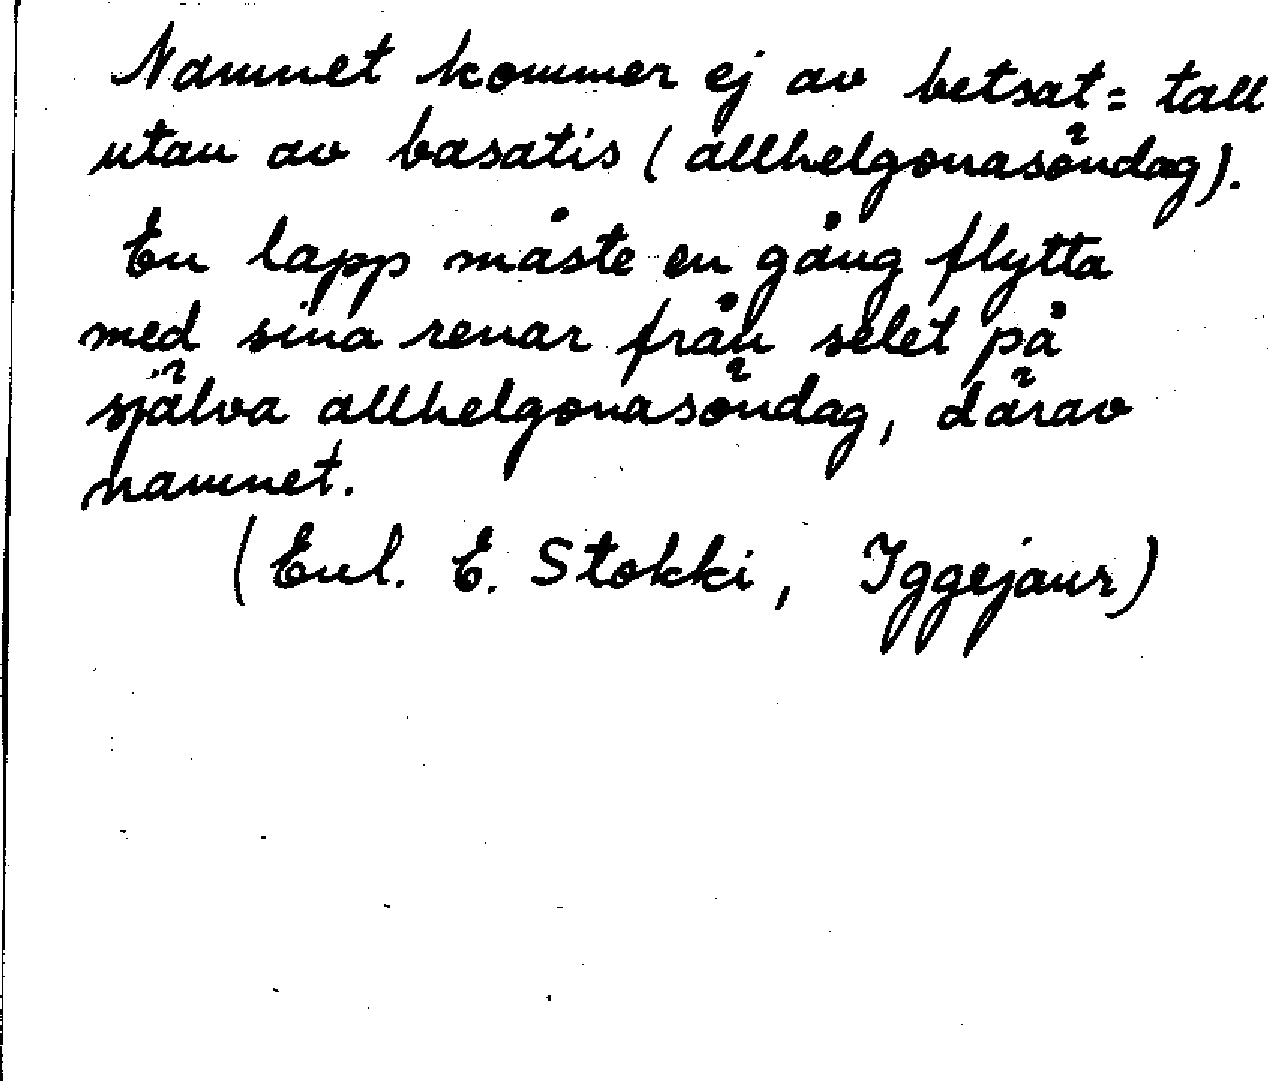 Namnet kommer ej av betsat = tall
utan av basatis (allhelgonasöndag).
En lapp måste en gång flytta
med sina renar från selet på
själva allhelgonasöndag, därav
namnet.
(Enl. E. Stokki, Iggejaur)